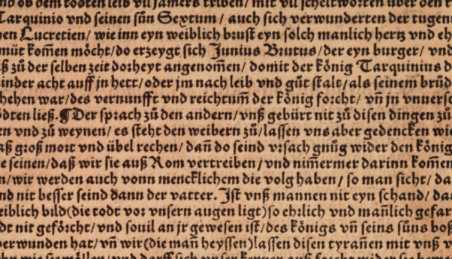 ob dem todten leib vil jamers triben/ mit vil scheltworten über den
Tarquinio vnd seinen sůn Sextum/ auch sich verwunderten der tugen
en Lucretien/ wie inn eyn weiblich brust eyn solch manlich hertz vnd eh
můt komen möcht/ do erzeygt sich Junius Brutus/ der eyn burger/ vnd
ß zů der selben zeit dorheyt angenom̃en/ domit der kőnig Tarquinius d
inder acht auff jn hett/ oder jm nach leib vnd gůt stalt/ als seinem brůd
hehen war/ des vernunfft vnd reichtum̃ der kőnig forcht/ vñ jn vnuers
dten ließ. ¶ Der sprach zů den andern/ vnß gebürt nit zů disen dingen zů
en vnd zů weynen/ es steht den weibern zů/ lassen vns aber gedencken wie
aß groß mort vnd übel rechen/ dañ do seind vrsach gnůg wider den kőnig
e seinen/ daß wir sie auß Rom vertreiben/ vnd nim̃ermer darinn kom̃en
n/ wir werden auch vonn mencklichem die volg haben/ so man sicht/ da
nd nit besser seind dann der vatter. Ist vnß mannen nit eyn schand/ da
eiblich bild (die todt vor vnsern augen ligt) so ehrlich vnd mañlich gefar
dt nit gefőrcht/ vnd souil an jr gewesen ist/ des kőnigs vñ seins sůns boß
berwunden hat/ vñ wir (die mañ heyssen) lassen disen tyrañen mit vnß v